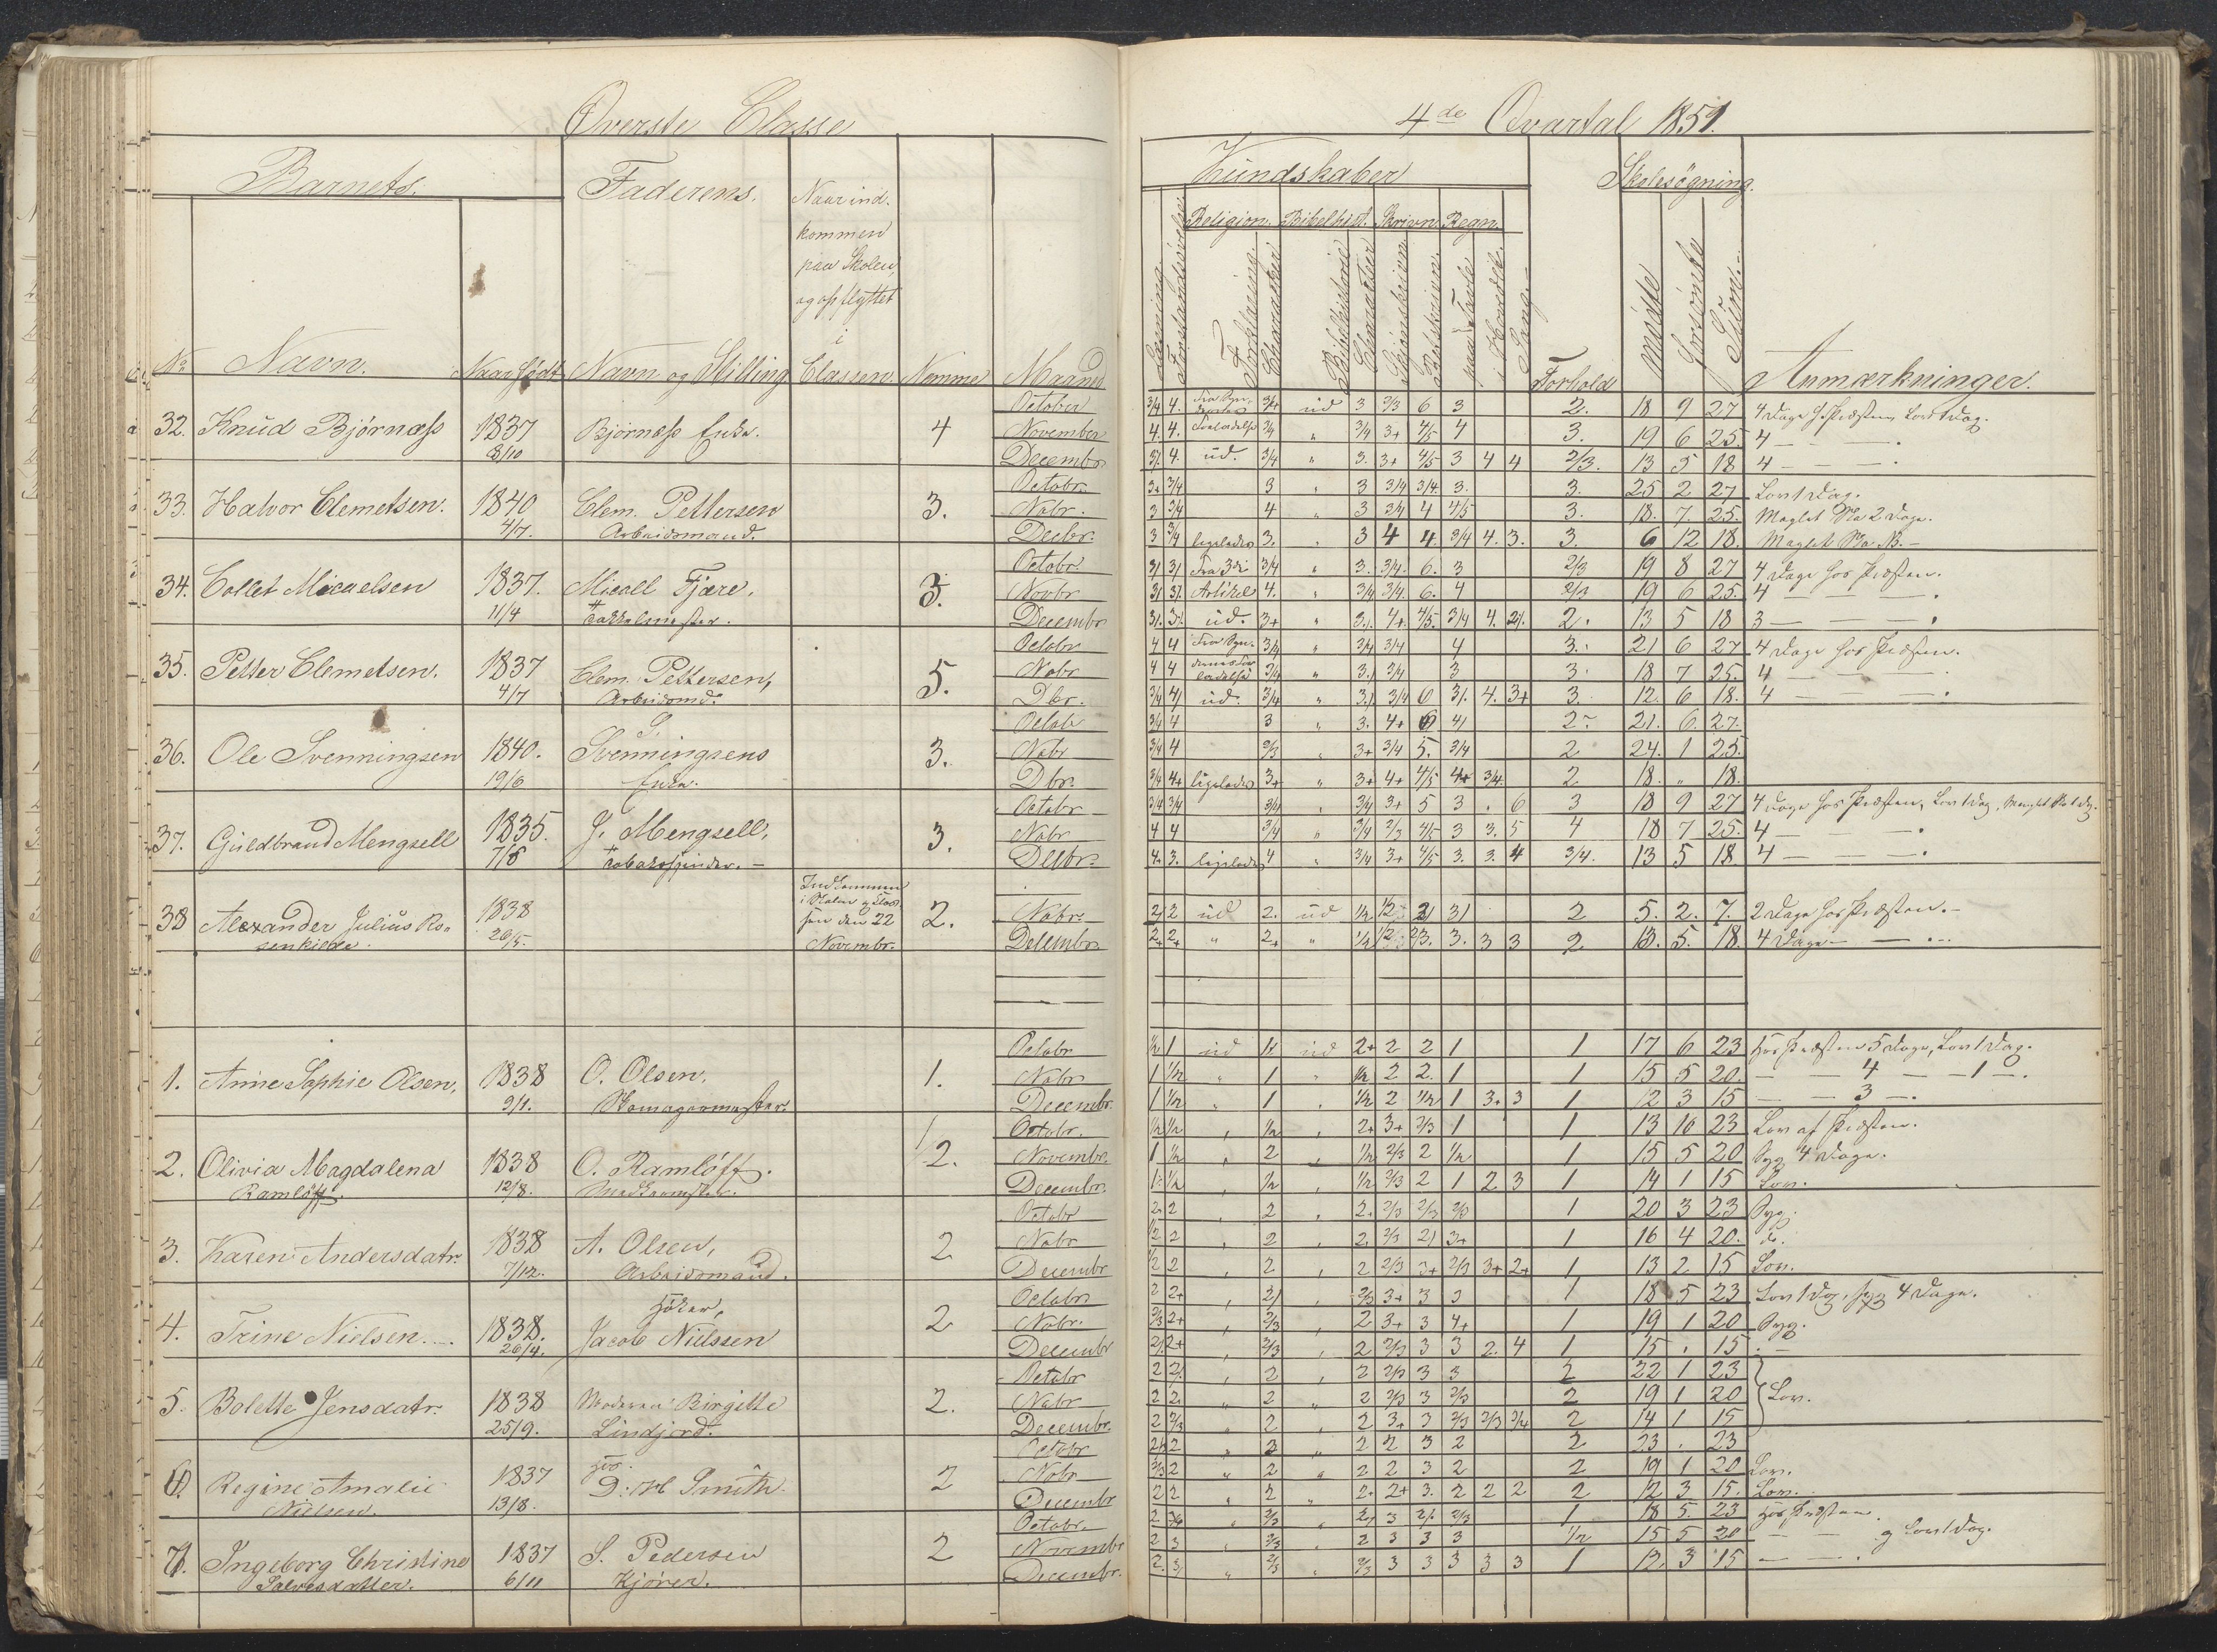 Øverste Classe
4de Qvartal 1851.
Barnets.
Faderens.
Naar ind-
kommen
paa Skolen,
og opflyttet
i
Classen
No Navn. Naar født Navn og Stilling Nemme Maaned
Kundskaber
Skolesøgning.
Religion. Bibelhist. Skrivn. Regn.
Læsning.
Forstandsøvelse
Forklaring
Bibelhistorie
Skjønskrivn.
Retskrivn.
paa Tavle
i Hovedet.
Sang.
Forhold
Mødte
Forsømte
Sum.
Anmærkninger.
32. Knud Bjørnæss 1837 8/10 Bjørnæss Enke. 4
October 3/4 4. 3/4 ud 3 2/3 6 3 2. 18 9 27 4 Dage h. Præsten Lov 1 Dag.
November 4. 4. 3/4 " 3/4 3+ 4/5 4 3. 19 6 25. 4 — — .
Decembr 4. ud. 3/4 " 3. 3+ 4/5 3 4 4 2/3. 13 5 18 4 — — .
33. Halvor Clemetsen. 1840 4/7. Clem. Pettersen Arbeidsmand. 3.
Octobr. 3+ 3/4 3 " 3 3/4 3/4. 3. 3. 25 2 27 Lov 1 Dag.
Nobr. 3 3/4 4 " 3 3/4 4 4/5 3. 18. 7. 25. Maglet Sko 2 Dage.
Decbr. 3 3/4 ligeledes 3. " 3 4 4 3/4 4. 3. 3. 6 12 18. Maglet Sko
34. Collet Micaelsen 1837. 11/4 Micall Fjære, Takkelmester. 3.
Octobr Fra 3die 3/4 " 3. 3/4. 6. 3 2/3 19 8 27 4 Dage hos Præsten.
Novbr Artikel 4. " 3/4 3/4. 6. 4 2/3 19 6 25. 4 — — .
Decembr ud. 3+ " 4+ 4/5. 3/4 4. 2. 13 5 18 3 — — .
35. Petter Clemetsen. 1837 4/7 Clem. Pettersen, Arbeidsmd. 5.
Octobr 4 4 3/4 " 3/4 3/4 4 3. 21 6 27 4 Dage hos Præsten.
Nobr 4 4 3/4 " 3/4 3 3. 18 7 25. 4 — — .
Dbr. 3/4 ud. 3/4 " 3/4 6 4. 3+ 3. 12. 6 18. 4 — — .
36. Ole Svenningsen 1840. 19/6 S. Svenningsens Enke. 3.
Octobr 3/4 4 3 " 3. 4+ 6 2 21. 6. 27.
Nobr 3/4 4 2/3 " 3+ 3/4 5. 3/4 2 24. 1 25.
Dbr. 3/4 4+ ligeledes 3+ " 3+ 4+ 4/5 4+ 3/4. 2 18. " 18.
37. Guldbrand Mengsell 1835. 7/8 J. Mengsell, Tobaksspinder. — 3.
Octobr 3/4 3/4 3/4 " 3/4 3+ 5 3 . 6 3 18 9 27 4 Dage hos Præsten, Lov 1 Dag, Maglet Sko 1 Dg.
Nobr 4 4 3/4 " 3/4 2/3 4/5 3 3. 5 4 18 7 25. 4 — — .
Decbr. 4. 3. ligeledes 4 " 3/4 3+ 4/5 3. 3. 4 3/4. 13 5 18 4 — — .
38 Alexander Julius Ro-
senkilde. 1838 26/5. Indkommen
i Skolen og Clas-
sen den 22
Novembr. 2.
Nobr. 2 ud 2. ud 1/2 2 5. 2. 7. 2 Dage hos Præsten. —
Decembr 2+ 2+ " 2+ " 2/3. 3. 3 3 2 13. 5. 18. 4 Dage — — .
1. Anne Sophie Olsen, 1838 9/1. O. Olsen, Skomagermester. 1.
Octobr 1/2 1 ud ud 2+ 2 2 1 1 17 6 23 Hos Præsten 5 Dage, Lov 1 Dag.
Nobr 1 1/2 " 1 " 1/2 2 2. 1 1 15 5 20. — — 4 — — 1 — .
Decembr. 1 1/2 " 1 " 1/2 2 1/2 1 3+ 3 1 12 3 15 — — 3 — .
2. Olivia Magdalena
Ramløff. 1838 12/8. O. Ramløff. 1/2.
Octobr. 1/2 1/2 " 1/2 " 2+ 3+ 2/3 1 1 13 10 23 Lov af Præsten.
Novembr. 1 1/2 " 2 " 1/2 2/3 2 1/2 1 15 5 20 Syg 4 Dage.
Decembr. 1/2 " 1/2 " 1/2 2/3 2 1 2 3 1 14 1 15 Lov.
3. Karen Andersdatr. 1838 7/12. A. Olsen, Arbeidsmand. 2
Octobr 2 2 " 2 " 2+ 2/3 2/3 2/3 1 20 3 23 Syg.
Nobr 1/2 2 " 2 " 2. 2/3 3+ 1 16 4 20. do.
Decembr 1/2 2 " 2 " 2 2/3 3+ 2/3 3+ 2+ 1 13 2 15 Lov.
4. Trine Nielsen. 1838. 26/4. Høker, Jacob Nielssen 2
Octobr 2 2+ " " 2/3 3+ 3 3 1 18 5 23 Lov 1 Dag, syg 4 Dage.
Nobr. 2/3 2+ " 2/3 " 2 3+ 3 4+ 1 19 1 20 Syg.
Decembr 2+ " 2/3 " 2 2/3 3 3 2. 4 1 15 . 15
5. Bolette Jensdatr. 1838 25/9. Moderen Birgitte
Lindjord. 2.
Octobr 2 " 2 " 2 2/3 3 3 2 22 1 23
Nobr 2 2. " 2 " 2 2/3 3 2/3 2 19 1 20 Lov.
Decembr. 2 2/3 " 2 " 2 3+ 3 2/3 2/3 3/4 2 14 1 15
6. Regine Amalie
Nielsen. 1837 13/8. D. H Smith. 2
Octobr 2 " 3 " 2 2 3 2 2 23 . 23
Nobr 2/3 2 " 2 " 2 2 3 2 2 19 1 20 Lov.
Decembr 2 2 " 2 " 2+ 2+ 3. 2 2 2 2 12 3 15. Lov.
7. Ingeborg Christine
Salvesdatter. 1837 6/11 S. Pedersen
Kjører. 2
Octobr. 2 " 2/3 " 3 2/3 1 18 5. 23 Hos Præsten.
Novembr 2 3 " 2/3 " 2 3 3 3 1/2 15 5 20 — — og Lov 1 Dag.
Decembr. 2. " 2/3 " 2/3 3 3 3 3 3 1 12. 3 15 — — .